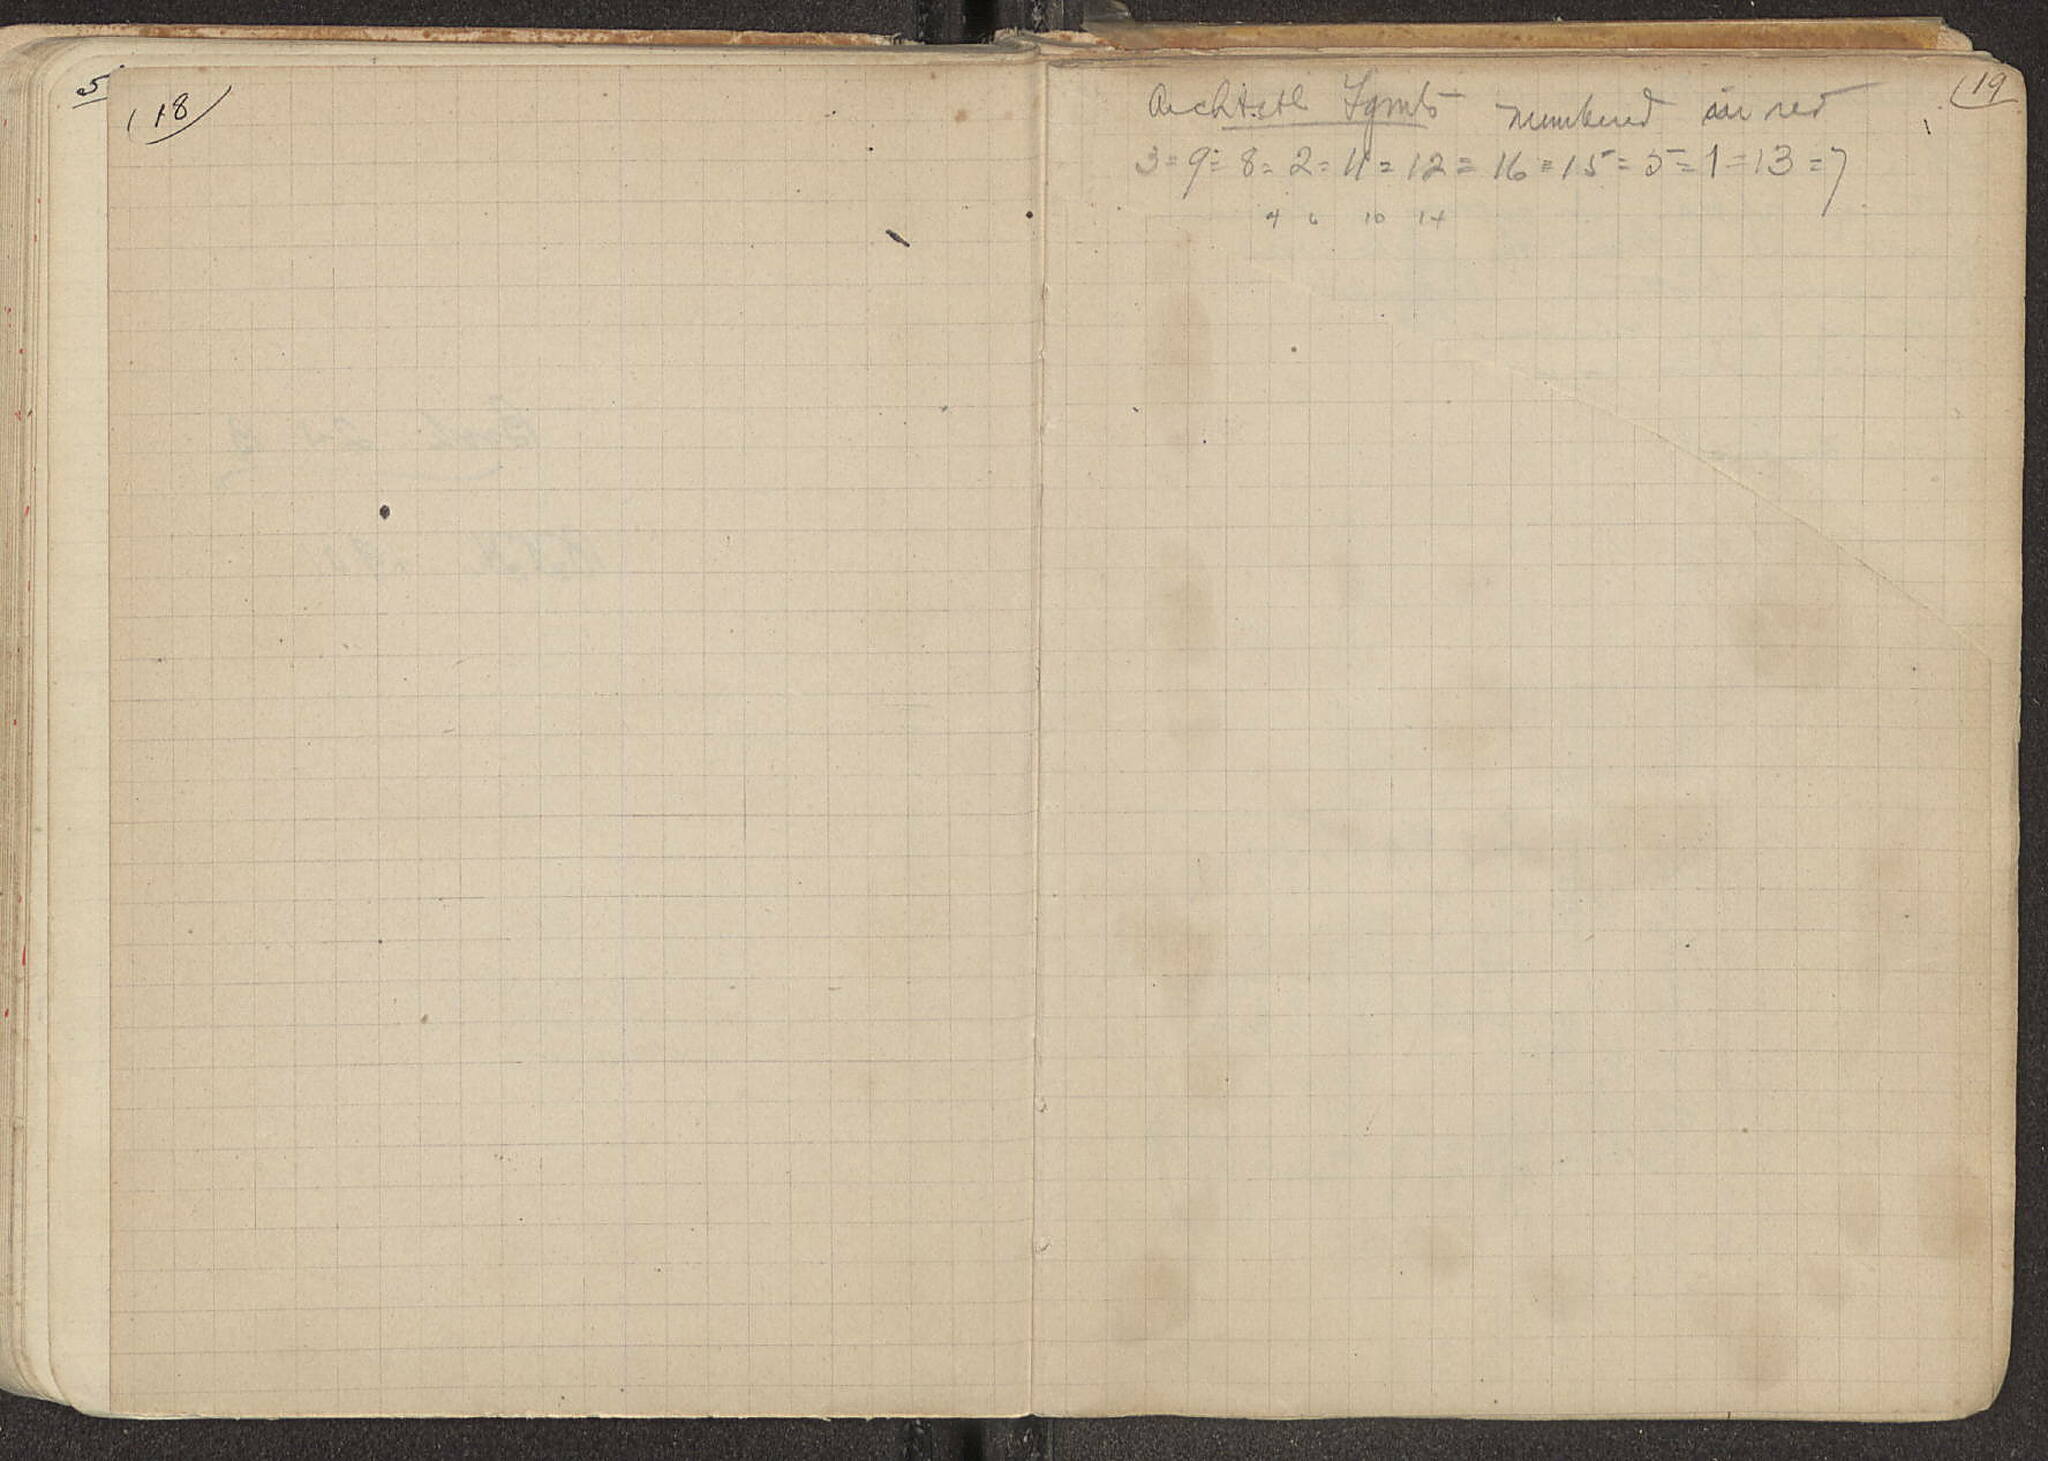 5
18
19
Architctl Fgmts numbered in red
3 = 9 = 8 = 2 = 11 = 12 = 16 = 15 = 5 = 1 = 13 = 7
4 6 10 14